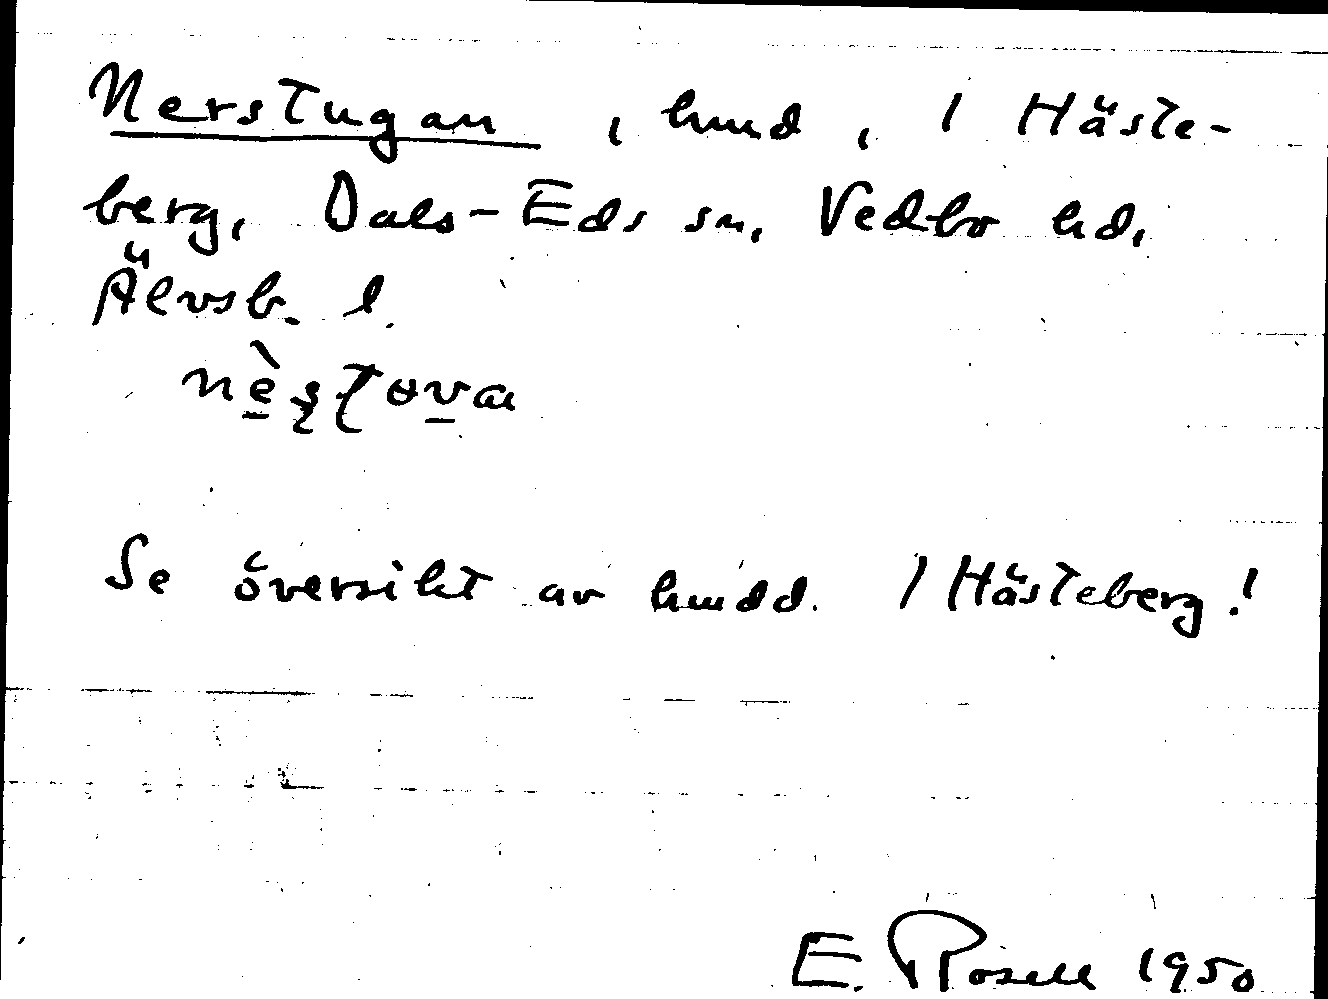 Nerstugan, hmd, 1 Häste-
berg, Dals-Eds sn, Vedbo hd,
Älvsb. l.
nè̠ʂʈɵv̠a
Se översikt av hmdd. 1 Hästeberg!
E. Rosell 1950